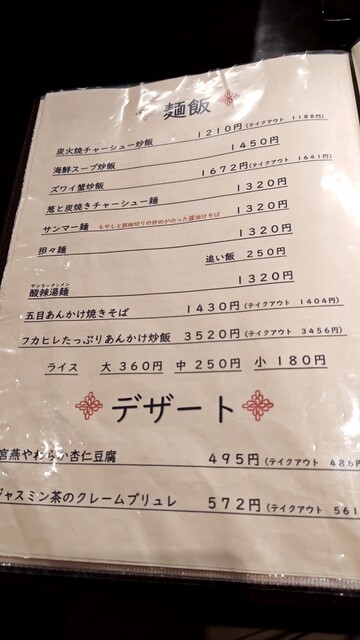 麺飯
炭火焼チャーシュー炒飯 1210円(テイクアウト 1188円)
海鮮スープ炒飯 1450円
ズワイ蟹炒飯 1672円(テイクアウト 1641円)
葱と炭焼きチャーシュー麺 1320円
サンマー麺 もやしと豚細切りの炒めがのった醤油汁そば 1320円
担々麺 1320円
追い飯 250円
サンラータンメン
酸辣湯麺 1320円
五目あんかけ焼きそば 1430円(テイクアウト 1404円)
フカヒレたっぷりあんかけ炒飯 3520円(テイクアウト 3456円)
ライス 大 360円 中 250円 小 180円
デザート
宮燕やわらか杏仁豆腐 495円(テイクアウト 486円
ジャスミン茶のクレームブリュレ 572円(テイクアウト 561